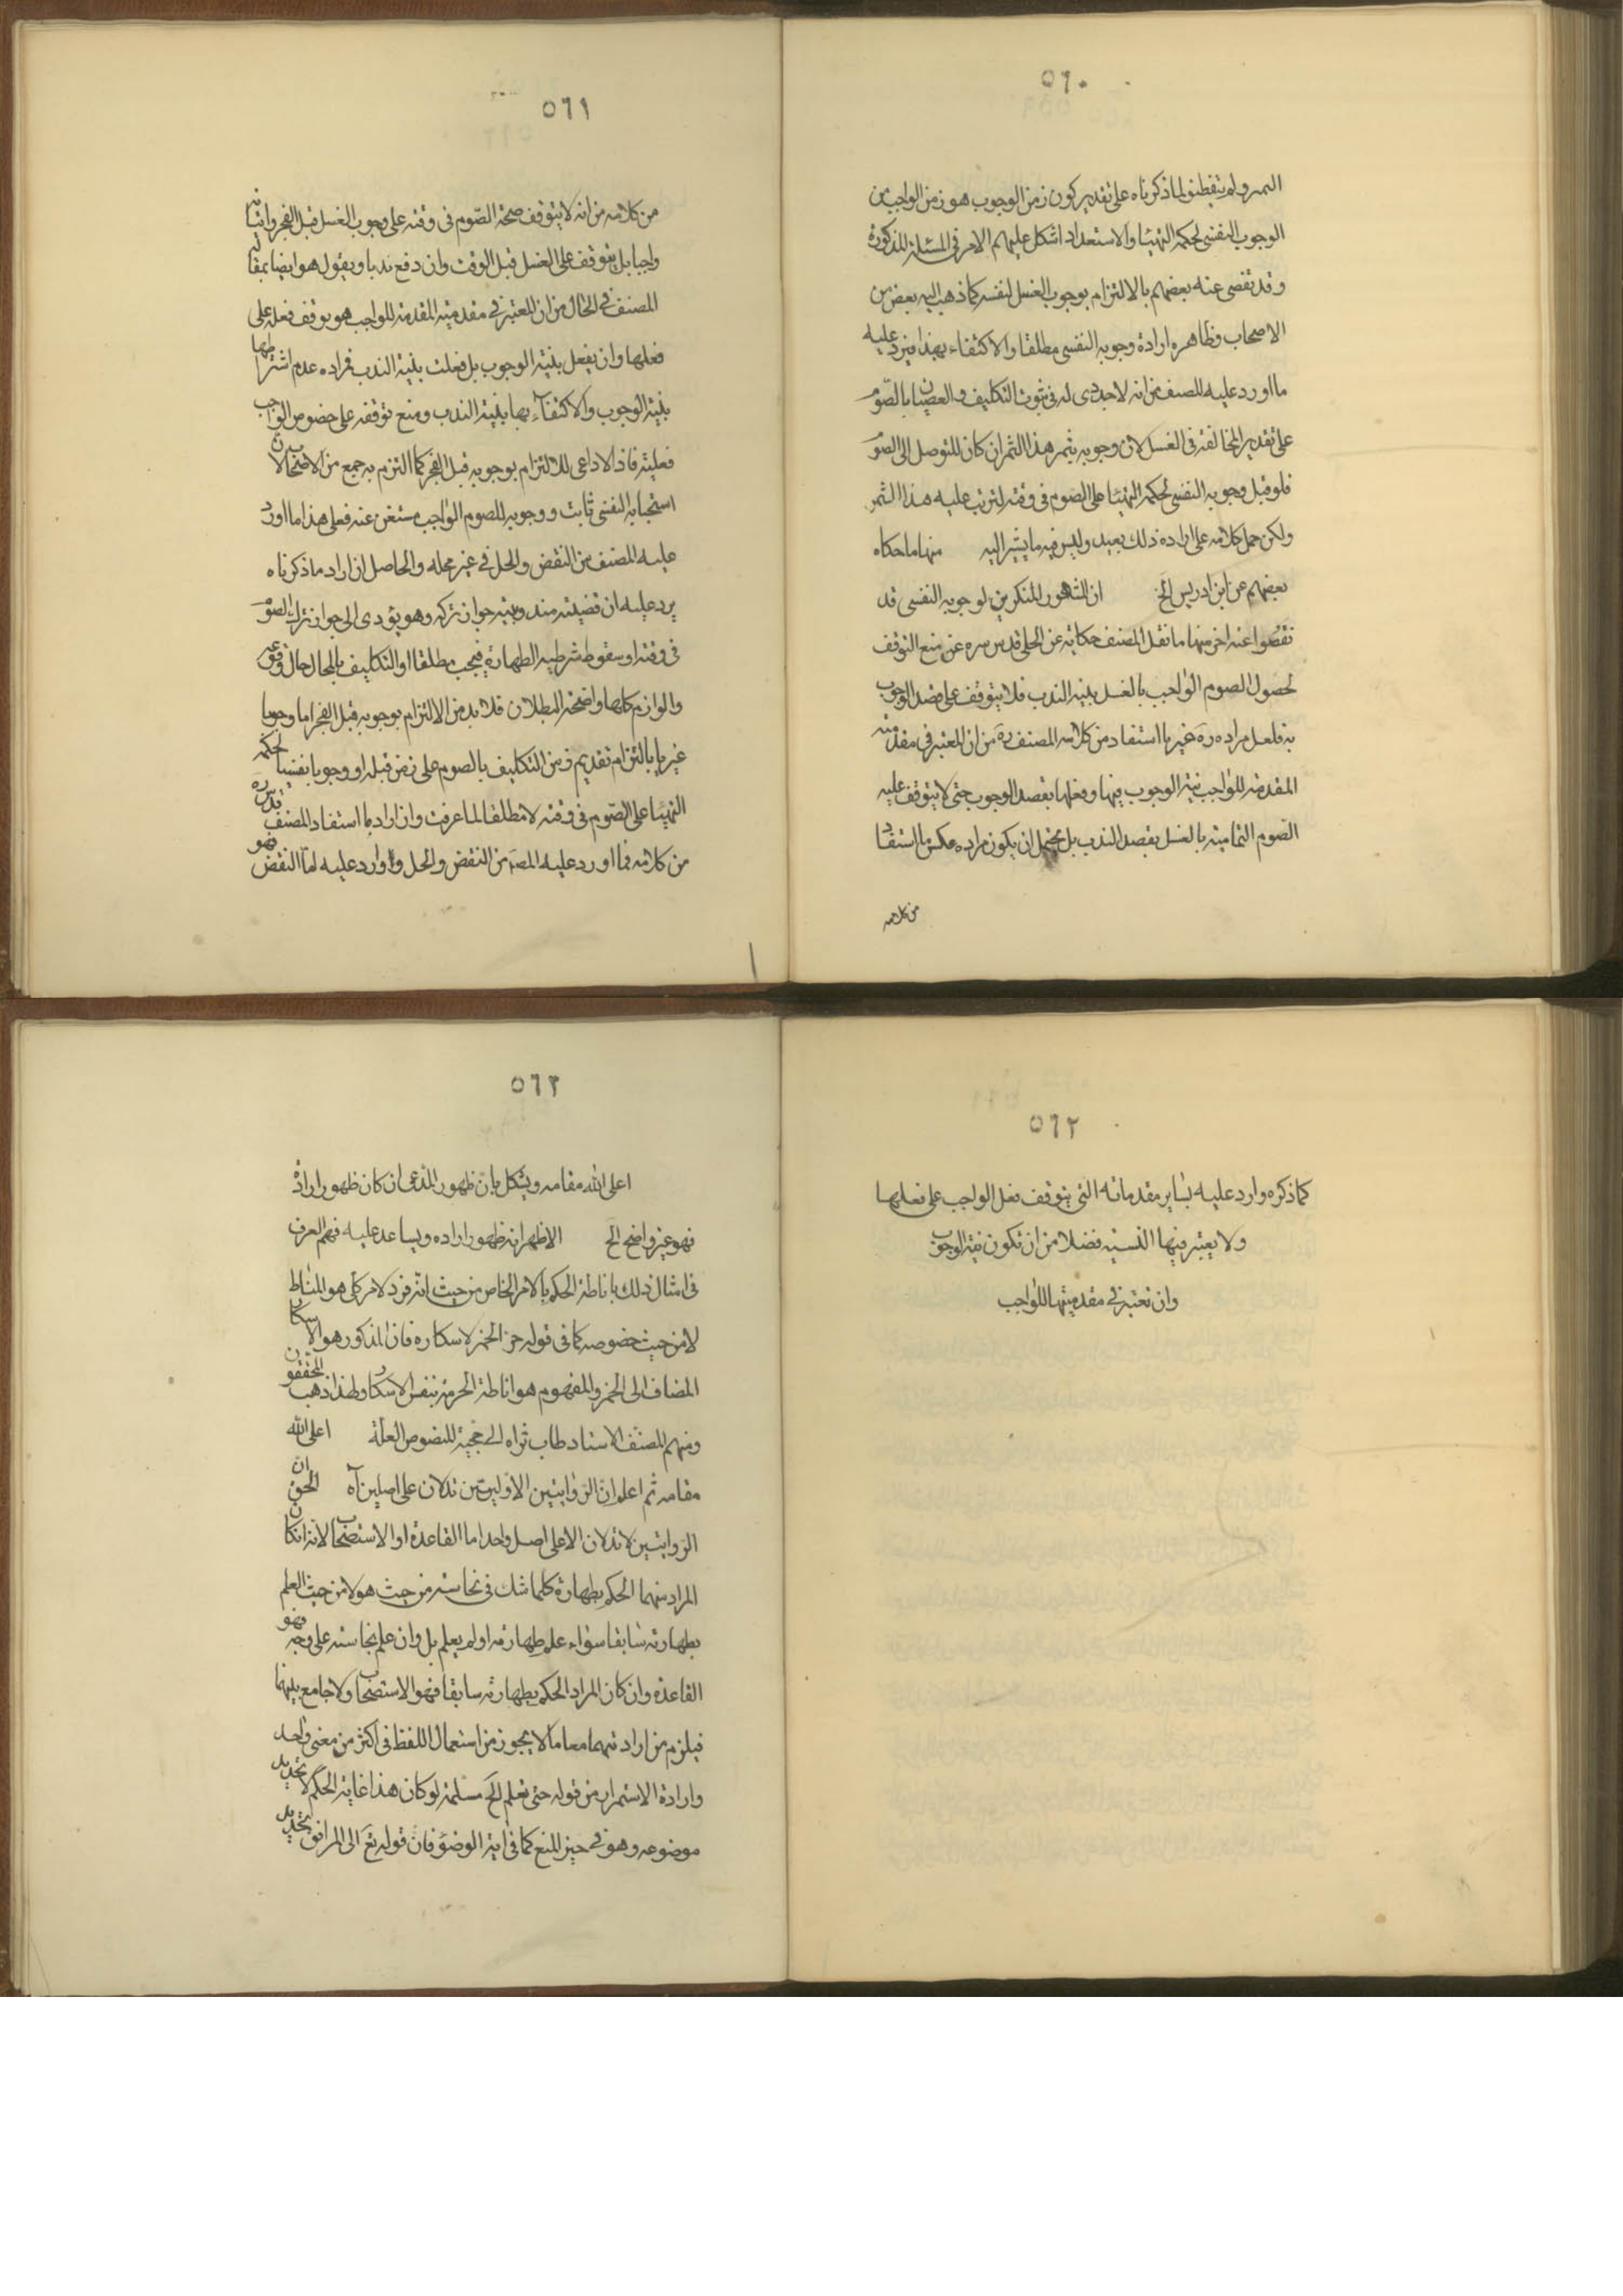 ٥٦٠
الثمر ولم يتفطنوا لما ذكرناه على تقدير كون زمن الوجوب هو زمن الواجب من
الوجوب النفسى لحكمة التهيئا والاستعداد اشكل عليهم الامر فى المسئلة المذكورة
وقد تفصى عنه بعضهم بالالتزام بوجوب الغسل لنفسه كما ذهب اليه بعض من
الاصحاب وظاهره ارادة وجوبه النفسى مطلقا والاكتفاء بهذا فيرد عليه
ما اورد عليه المصنف من انه لا يجدى له فى ثبوت التكليف والعصيان بالصوم
على تقدير المخالفة فى الغسل لان وجوبه يثمر هذا الثمر ان كان للتوصل الى الصوم
فلو قيل وجوبه النفسى لحكمة التهيئا على الصوم فى وقته لترتب عليه هذا الثمر
ولكن حمل كلامه على ارادة ذلك بعيد وليس فيه ما يشير اليه منها ما حكاه
بعضهم عن ابن ادريس الخ ان المشهور المنكرين لوجوبه النفسى قد
تفصوا عنه اخر منها ما نقل المصنف حكايته عن الحلى قدس سره عن منع التوقف
لحصول الصوم الواجب بالغسل بنية الندب فلا يتوقف على قصد الوجوب
به فلعل مراده ره غير ما استفاد من كلامه المصنف ره من ان المعتبر فى مقدمته
المقدمة للواجب نية الوجوب فيها وفعلها بقصد الوجوب حتى لا يتوقف عليه
الصوم التمامية بالغسل بقصد الندب بل يحتمل ان يكون مراده عكس ما استفاد
من كلامه
٥٦١
من كلامه من انه لا يتوقف صحة الصوم فى وقته على وجوب الغسل قبل الفجر واتيانه
واجبا بل يتوقف على الغسل قبل الوقت وان دفع ندبا ويقول هو ايضا بمقالة
المصنف فى الحال من ان المعتبر فى مقدمية المقدمة للواجب هو توقف فعله على
فعلها وان يفعل بنية الوجوب بل فعلت بنية الندب فمراده عدم اشتراطها
بنية الوجوب والاكتفاء بها بنية الندب ومنع توقفه على خصوص الواجب
فعليته فاذ لا داعى للالتزام بوجوبه قبل الفجر كما التزم به جمع من الاصحاب لان
استحبابه النفسى ثابت ووجوبه للصوم الواجب مستغن عنه فعلى هذا ما اورد
عليه المصنف من النقض والحل فى غير محله والحاصل ان اراد ما ذكرناه
يرد عليه ان قضيته مندوبيته جواز تركه وهو يؤدى الى جواز ترك الصوم
فى وقته او سقوط شرطيه الطهارة فيجب مطلقا او التكليف بالمحال حال وقوعه
واللوازم كلها واضحة البطلان فلا بد من الالتزام بوجوبه قبل الفجر اما وجوبا
غيريا بالتزام تقديم زمن التكليف بالصوم على زمن قبله او وجوبا نفسيا لحكمة
التهيئا على الصوم فى وقته لا مطلقا لما عرفت وان اراد ما استفاد المصنف قدس سره
من كلامه فما اورد عليه المص من النقض والحل وارد عليه اما النقض فهو
٥٦٢
كما ذكره وارد عليه بساير مقدماته التى يتوقف فعل الواجب على فعلها
ولا يعتبر فيها النية فضلا من ان تكون نية الوجوب
وان تعتبر فى مقدميتها للواجب
٥٦٣
اعلى الله مقامه ويشكل بان ظهور المدعى ان كان ظهور ارادة
فهو غير واضح الخ الاظهر انه ظهور اراده ويساعد عليه فهم العرف
فى امثال ذلك باناطة الحكم بالامر الخاص من حيث انه فرد لامر كلى هو المناط
لا من حيث خصوصه كما فى قوله حرم الخمر لاسكاره فان المذكور هو الاسكار
المضاف الى الخمر والمفهوم هو اناطة الحرمة بنفس الاسكار ولهذا ذهب المحققون
ومنهم المصنف الاستاد طاب ثراه الى حجية المنصوص العلة اعلى الله
مقامه ثم اعلم ان الروايتين الاوليين تدلان على اصلين آه الحق ان
الروايتين لا تدلان الا على اصل واحد اما القاعدة او الاستصحاب لانه ان كان
المراد منهما الحكم بطهارة كلما شك فى نجاسته من حيث هو لا من حيث العلم
بطهارته سابقا سواء علم طهارته او لم يعلم بل وان علم نجاسته على وجه فهو
القاعدة وان كان المراد الحكم بطهارته سابقا فهو الاستصحاب ولا جامع بينهما
فيلزم من ارادتهما معا ما لا يجوز من استعمال اللفظ فى اكثر من معنى واحد
وارادة الاستمرار من قوله حتى تعلم الخ مسلمة لو كان هذا غاية الحكم لا تحديد
موضوعه وهو فى حيز المنع كما فى اية الوضوء فان قوله تع الى المرافق تحديد